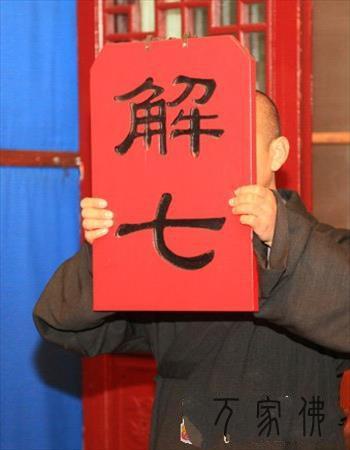 解
七
万家佛